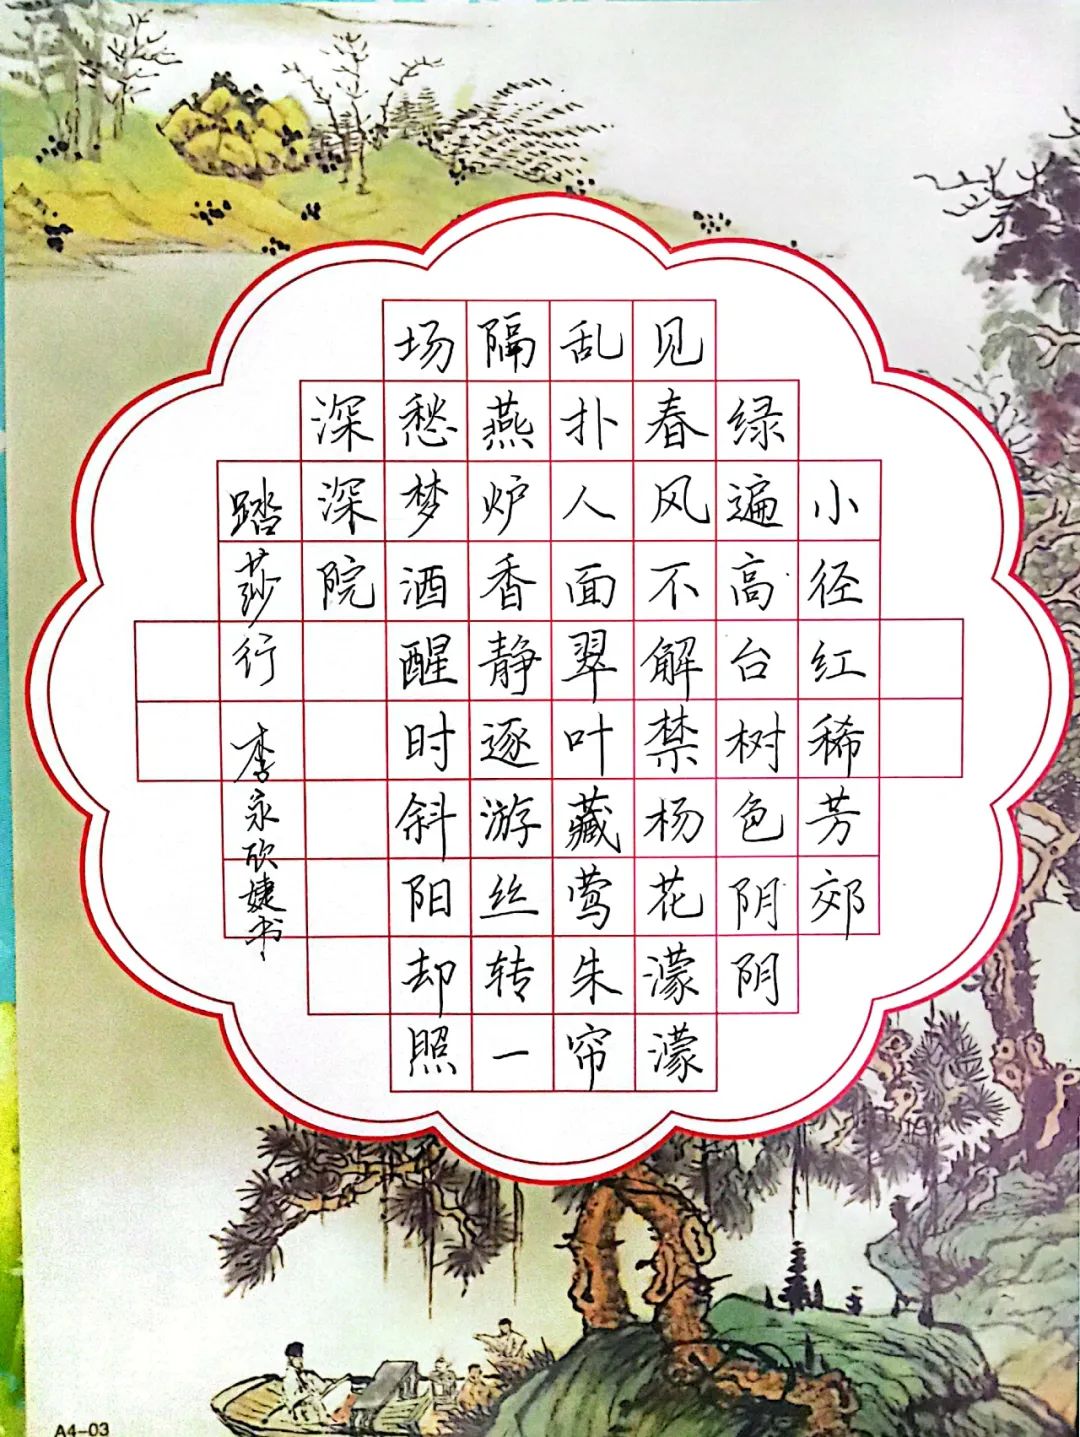 小径红稀芳郊
绿遍高台树色阴阴
见春风不解禁杨花濛濛
乱扑人面翠叶藏莺朱帘
隔燕炉香静逐游丝转一
场愁梦酒醒时斜阳却照
深深院
踏莎行 李永欣婕书
A4-03